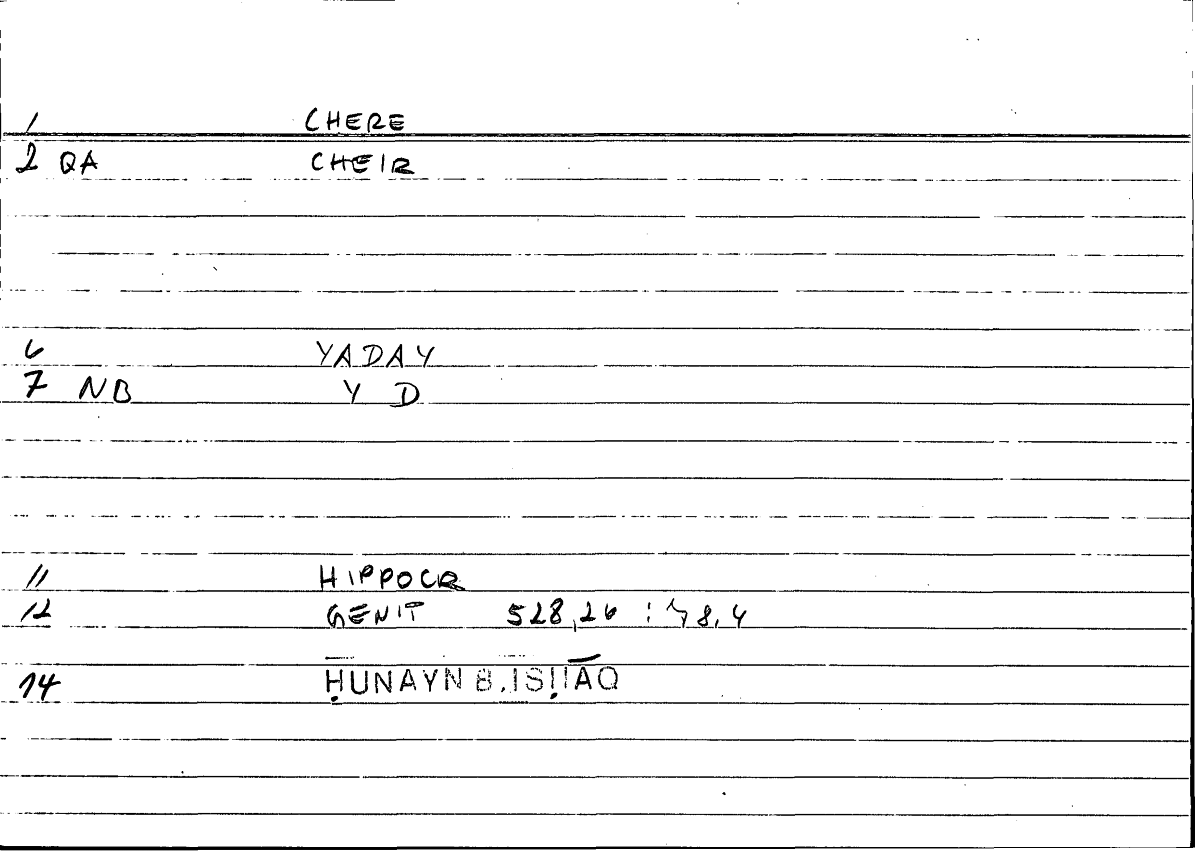 1 CHERE
2 QA CHEIR
6 YADAY
7 NB Y D
11 HIPPOCR
12 GENIT 528,26 : 8,4
14 ḤUNAYN B. ISḤĀQ